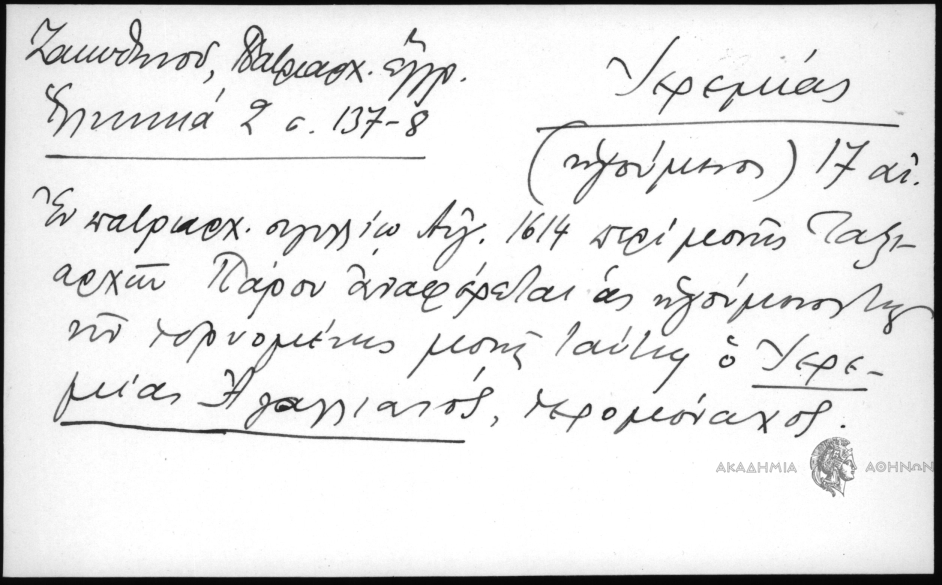 Ζακυθηνοῦ, Πατριαρχ. ἔγγρ.
Ἑλληνικά 2 σ. 137-8
Ἱερεμίας
(ἡγούμενος) 17 αἰ.
Ἐν πατριαρχ. σιγιλλίῳ Αὐγ. 1614 περί μονῆς Ταξι-
αρχῶν Πάρου ἀναφέρεται ὡς ἡγούμενος τῆς
ἱδρυομένης μονῆς ταύτης ὁ Ἱερε-
μίας Ἀγαλλιανός, ἱερομόναχος.
ΑΚΑΔΗΜΙΑ ΑΘΗΝΩΝ